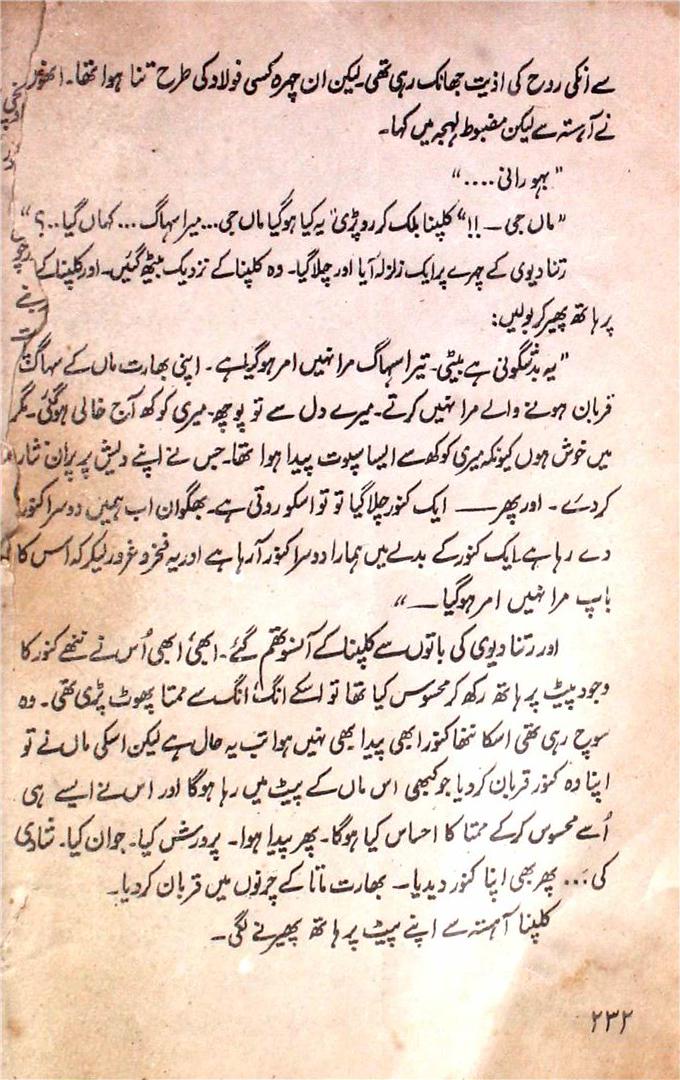 سے انکی روح کی اذیت جھانک رہی تھی۔ لیکن ان چہرہ کسی فولاد کی طرح تنا ہوا تھا۔ انھوں
نے آہستہ سے لیکن مضبوط لہجہ میں کہا۔
"بہو رانی ...."
"ماں جی ــ !!" کلپنا بلک کر رو پڑی "یہ کیا ہو گیا ماں جی ... میرا سہاگ ... کہاں گیا ..؟"
رتنا دیوی کے چہرے پر ایک زلزلہ آیا اور چلا گیا۔ وہ کلپنا کے نزدیک بیٹھ گئیں۔ اور کلپنا کے
پر ہاتھ پھیر کر بولیں:
"یہ بدشگونی ہے بیٹی۔ تیرا سہاگ مرا نہیں امر ہو گیا ہے۔ اپنی بھارت ماں کے سہاگ
قربان ہونے والے مرا نہیں کرتے۔ میرے دل سے تو پوچھ۔ میری کوکھ آج خالی ہو گئی۔ مگر
میں خوش ہوں کیونکہ میری کوکھ سے ایسا سپوت پیدا ہوا تھا۔ جس نے اپنے دیش پر پران نثار
کر دئے۔ اور پھر ـــــ ایک کنور چلا گیا تو تو اسکو روتی ہے۔ بھگوان اب ہمیں دوسرا کنور
دے رہا ہے۔ ایک کنور کے بدلے میں ہمارا دوسرا کنور آرہا ہے اور یہ فخر و غرور لیکر کہ اس کا
باپ مرا نہیں امر ہو گیا ــ"
اور رتنا دیوی کی باتوں سے کلپنا کے آنسو تھم گئے۔ ابھی ابھی اُس نے ننھے کنور کا
وجود پیٹ پر ہاتھ رکھ کر محسوس کیا تھا تو اسکے انگ انگ سے ممتا پھوٹ پڑی تھی۔ وہ
سوچ رہی تھی اسکا ننھا کنور ابھی پیدا بھی نہیں ہوا تب یہ حال ہے لیکن اسکی ماں نے تو
اپنا وہ کنور قربان کر دیا جو کبھی اس ماں کے پیٹ میں رہا ہوگا اور اس نے ایسے ہی
اُسے محسوس کر کے ممتا کا احساس کیا ہوگا۔ پھر پیدا ہوا۔ پرورش کیا۔ جوان کیا۔ شادی
کی ... پھر بھی اپنا کنور دیدیا ــ بھارت ماتا کے چرنوں میں قربان کر دیا۔
کلپنا آہستہ سے اپنے پیٹ پر ہاتھ پھیرنے لگی۔
۲۳۲